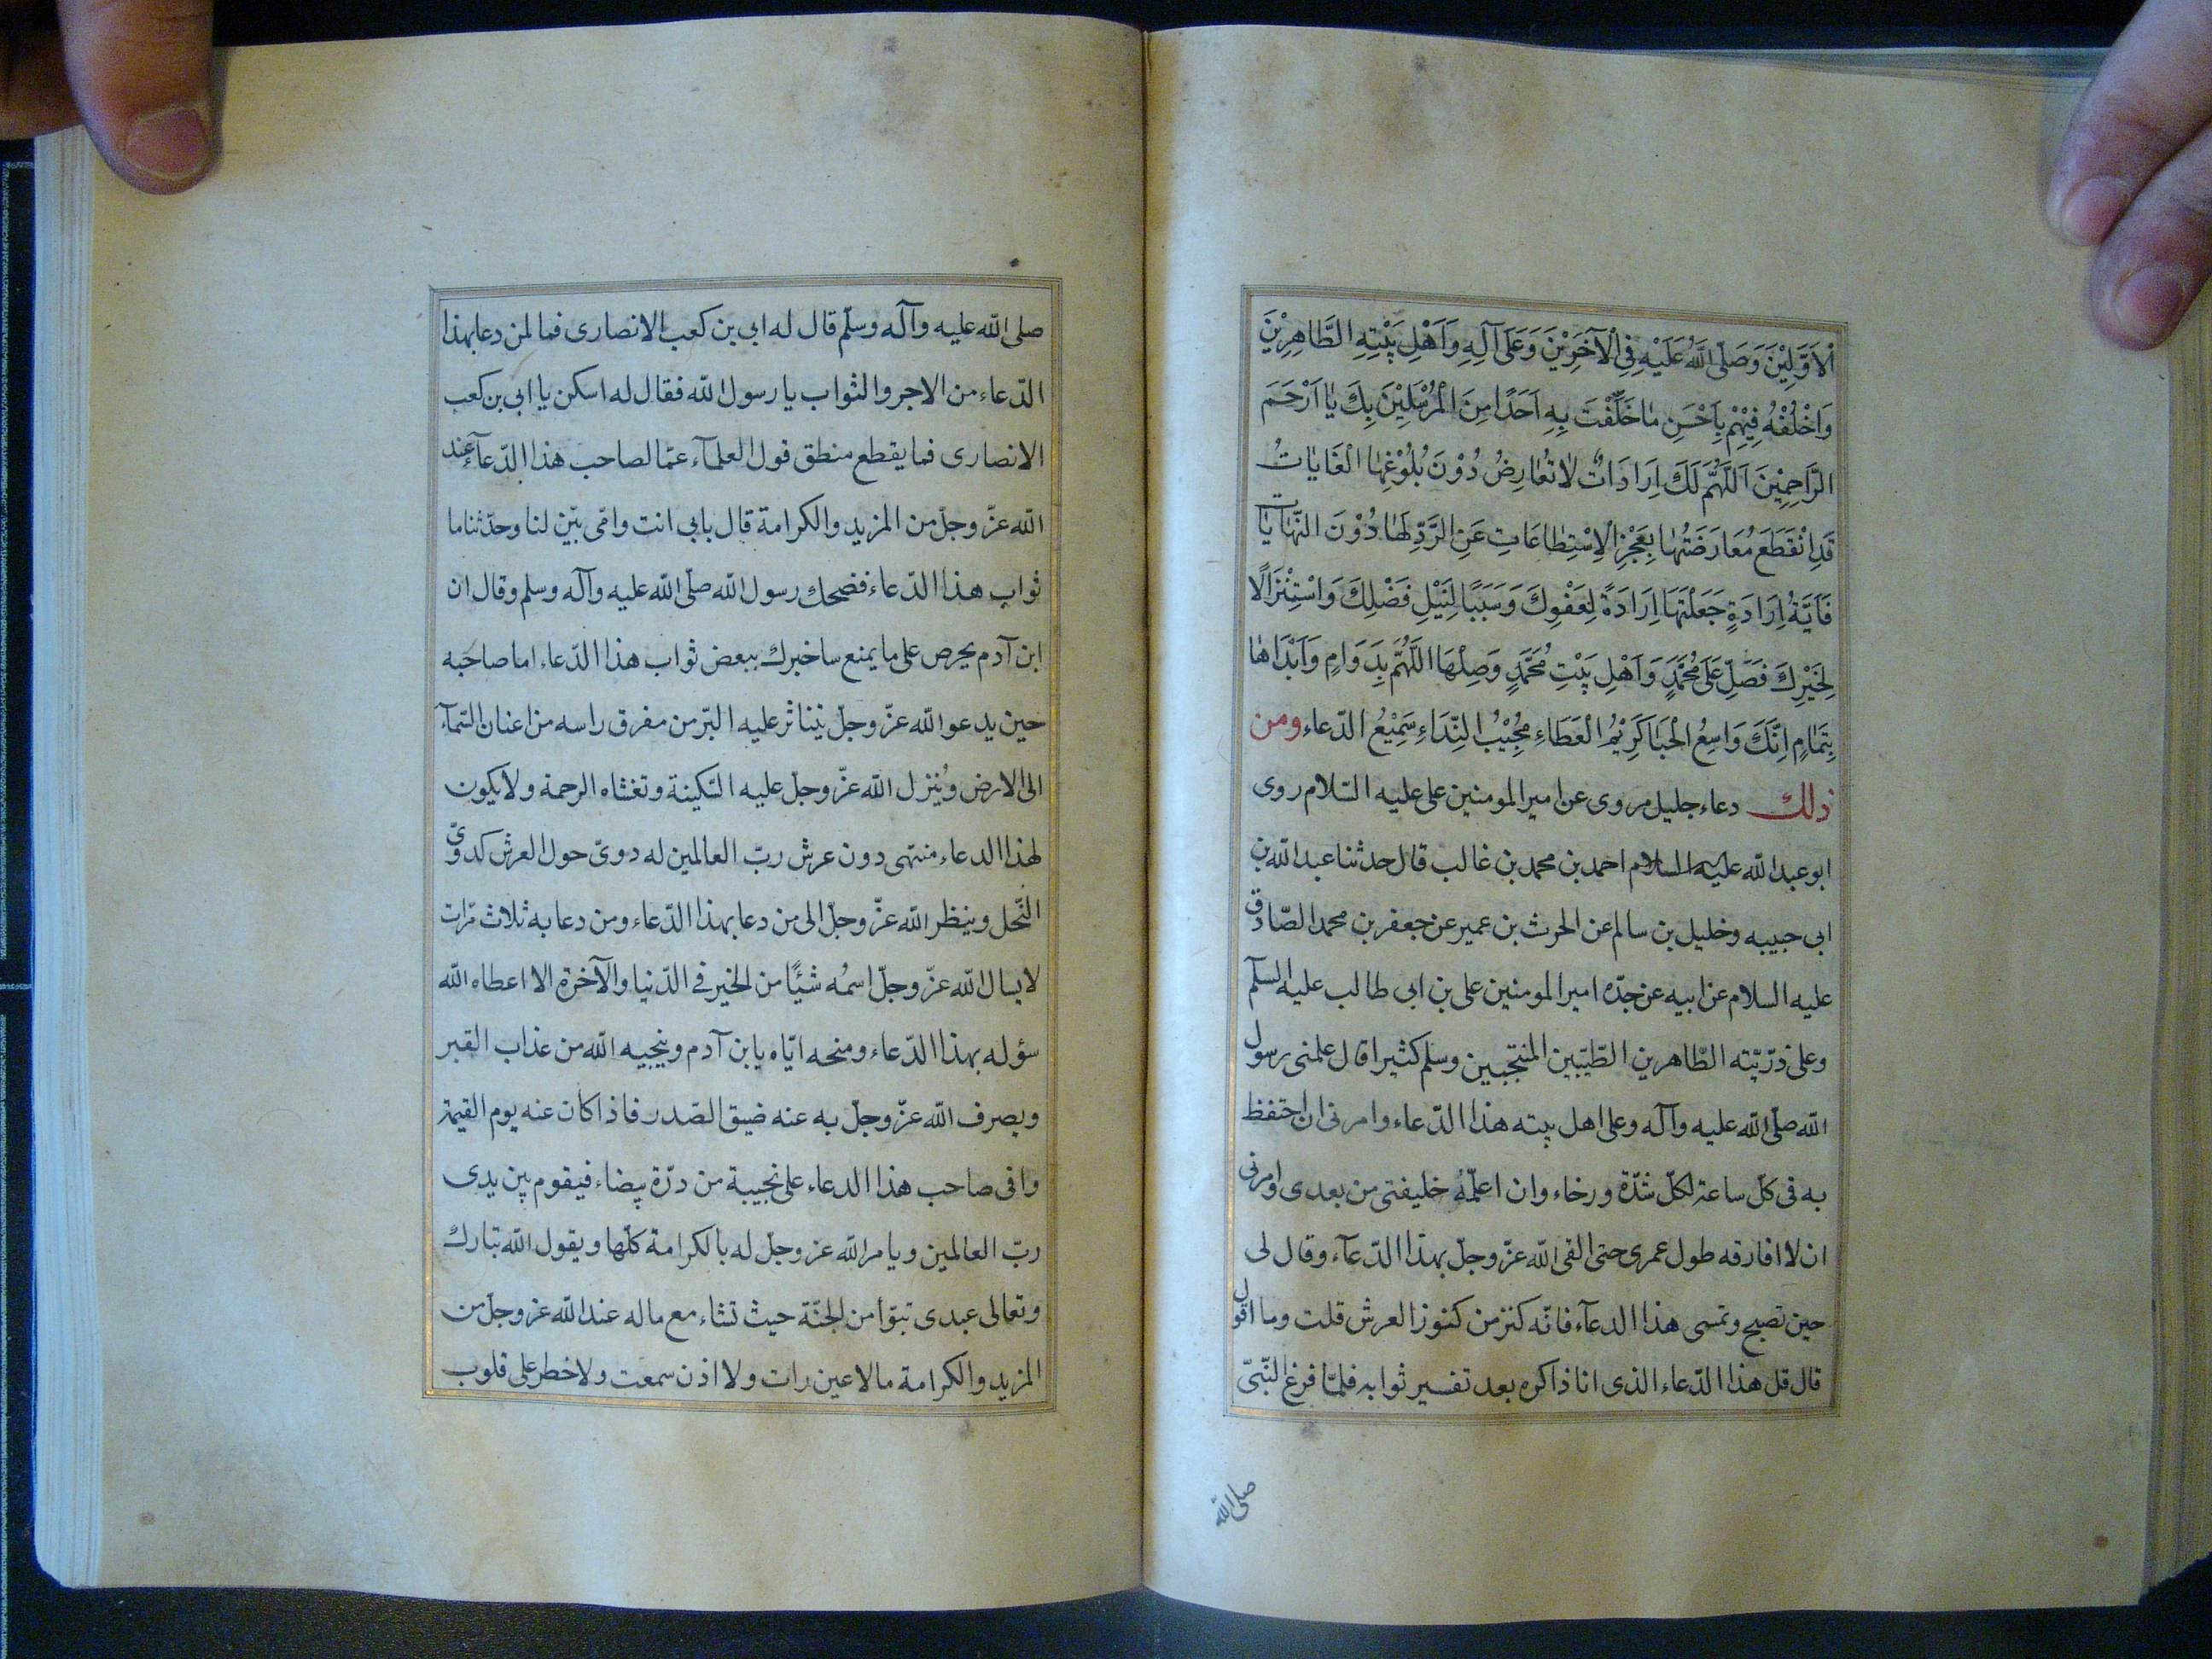 اْلاَوَّلِيْنَ وَصَلَّى اللّٰهُ عَلَيْهِ فِى الْآخَرِيْنَ وَعَلَى آلِهِ وَاَهْلِ بَيْتِهِ الطَّاهِرِيْنَ
وَاخْلُفْهُ فِيْهِمْ بِاَحْسَنِ مَا خَلَّفْتَ بِهِ اَحَدًا مِنَ الْمُرْسَلِيْنَ بِكَ يَا اَرْحَمَ
الرَّاحِمِيْنَ اَللّٰهُمَّ لَكَ اِرَادَاتٌ لَا تُعَارِضُ دُوْنَ بُلُوْغِهَا الْغَايَاتُ
قَدِ انْقَطَعَ مُعَارَضَتُهَا بِعَجْزِ الْاِسْتِطَاعَاتِ عَنِ الرَّدِّ لَهَا دُوْنَ النِّهَايَاتِ
فَاَيَّةُ اِرَادَةٍ جَعَلْتَهَا اِرَادَةً لِعَفْوِكَ وَسَبَبًا لِنَيْلِ فَضْلِكَ وَاسْتِنْزَالًا
لِخَيْرِكَ فَصَلِّ عَلَى مُحَمَّدٍ وَاَهْلِ بَيْتِ مُحَمَّدٍ وَصِلْهَا اللّٰهُمَّ بِدَوَامٍ وَاَبْدَاهَا
بِتَمَامٍ اِنَّكَ وَاسِعُ الْحَبَا كَرِيْمُ الْعَطَاءِ مُجِيْبُ النِّدَاءِ سَمِيْعُ الدّعاء ومن
ذلك دعاء جليل مروى عن امير المومنين على عليه السّلام روى
ابو عبد الله عليه السلام احمد بن محمد بن غالب قال حدثنا عبد الله بن
ابى حبيبه وخليل بن سالم عن الحرث بن عمير عن جعفر بن محمد الصّادق
عليه السلام عن ابيه عن جدّه امير المومنين على بن ابى طالب عليه السلم
وعلى ذرّيّته الطّاهرين الطّيّبين المنتجبين وسلم كثيرا قال علمنى رسول
الله صلّى الله عليه وآله وعلى اهل بيته هذا الدّعاء وامرنى ان احتفظ
به فى كلّ ساعة لكلّ شدّة ورخاء وان اعلّمهُ خليفتى من بعدى وامرنى
ان لا افارقه طول عمرى حتى القى الله عزّ وجلّ بهذا الدّعآء وقال لى
حين تصبح وتمسى هذا الدعآء فانّه كنز من كنوز العرش قلت وما اقول
قال قل هذا الدّعاء الذى انا ذاكره بعد تفسير ثوابه فلمّا فرغ النّبىّ
صلى الله
صلى الله عليه وآله وسلّم قال له ابى بن كعب الانصارى فما لمن دعا بهذا
الدّعاء من الاجر والثواب يا رسول الله فقال له اسكن يا ابى بن كعب
الانصارى فما يقطع منطق قول العلمآء عمّا لصاحب هذا الدّعآء عند
الله عزّ وجلّ من المزيد والكرامة قال بابى انت وامّى بيّن لنا وحدّثنا ما
ثواب هذا الدّعاء فضحك رسول الله صلّى الله عليه وآله وسلم وقال ان
ابن آدم يحرص على ما يمنع ساخبرك ببعض ثواب هذا الدّعاء اما صاحبه
حين يدعو الله عزّ وجلّ يتناثر عليه البرّ من مفرق راسه من اعنان السّمآء
الى الارض ويُنزل الله عزّ وجلّ عليه السّكينة وتغشاه الرحمة ولا يكون
لهذا الدعاء منتهى دون عرش ربّ العالمين له دوىّ حول العرش كدوىّ
النّحل وينظر الله عزّ وجلّ الى من دعا بهذا الدّعاء ومن دعا به ثلاث مرّات
لا يسال الله عزّ وجلّ اسمُه شيْئًا من الخير فى الدّنيا والآخرة الا اعطاه الله
سؤله بهذا الدّعاء ومنحه ايّاه يابن آدم وينجيه الله من عذاب القبر
ويصرف الله عزّ وجلّ به عنه ضيق الصّدر فاذا كان عنه يوم القيمة
وافى صاحب هذا الدعاء على نجيبة من درّة بيضاء فيقوم بين يدى
ربّ العالمين ويامر الله عز وجلّ له بالكرامة كلّها ويقول الله تبارك
وتعالى عبدى تبوّأ من الجنّة حيث تشاء مع ماله عند الله عز وجلّ من
المزيد والكرامة مالا عين رات ولا اذن سمعت ولا خطر على قلوب